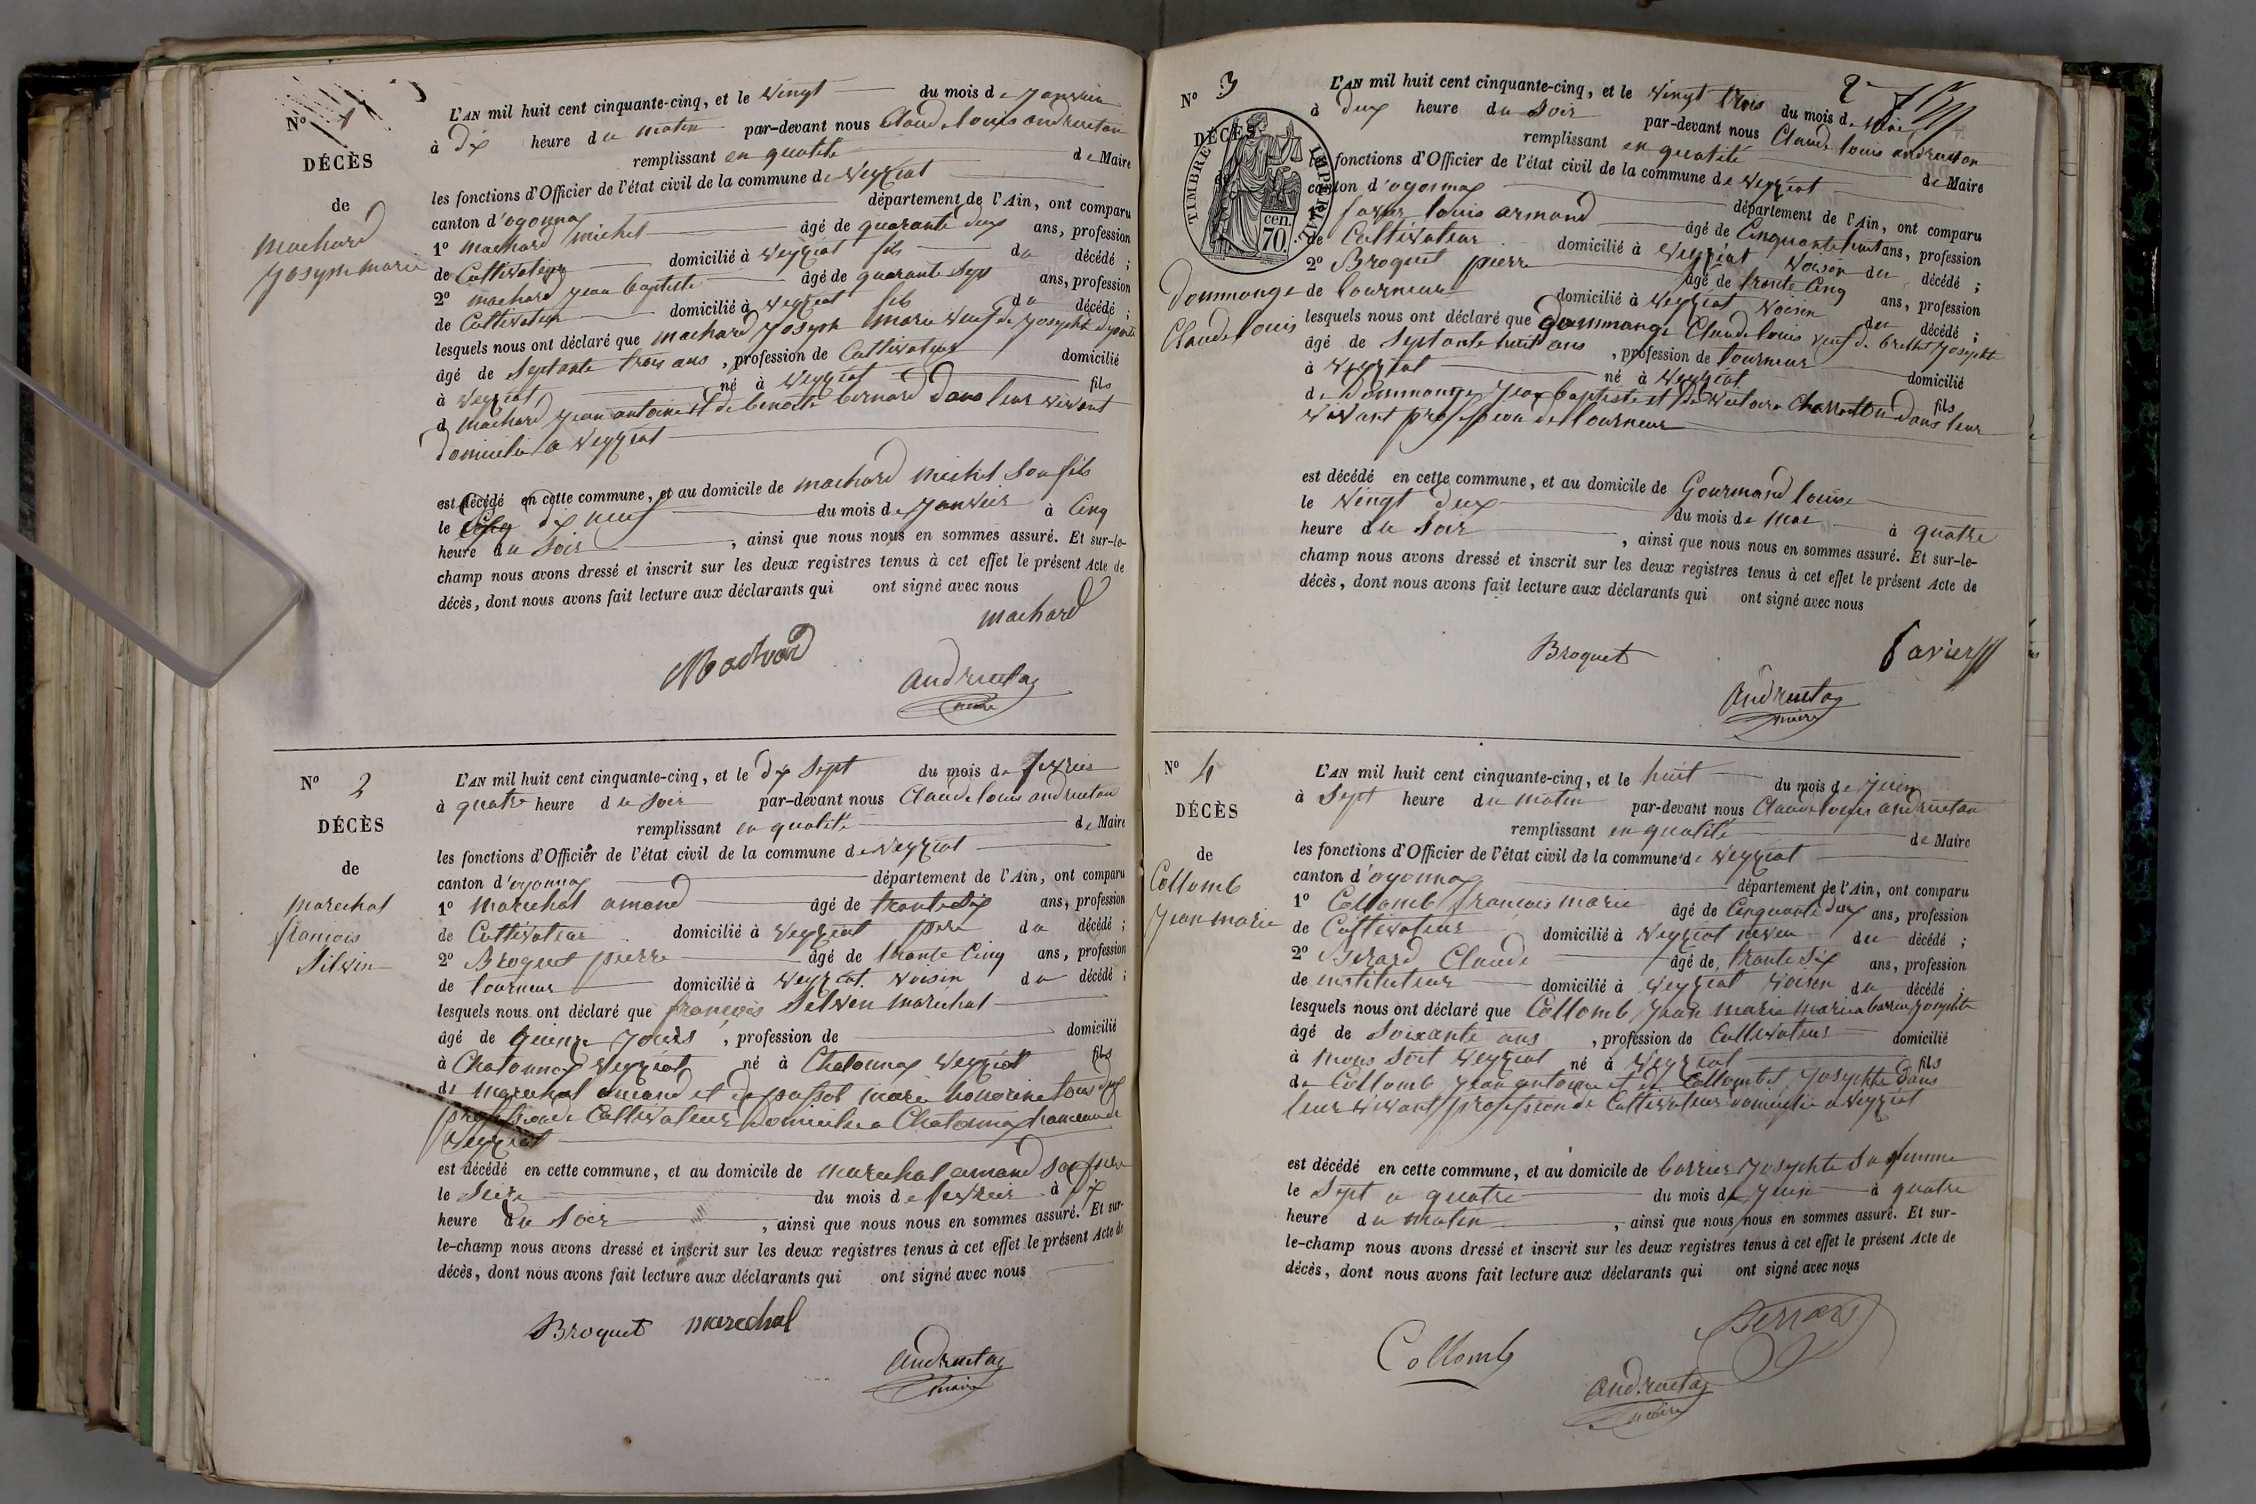 N° 1
DÉCÈS
de
machard
Joseph marie
L'AN mil huit cent cinquante-cinq, et le vingt du mois de Janvier
à dix heure du matin par-devant nous Claude louis andruetan
remplissant en qualité de Maire
les fonctions d'Officier de l'état civil de la commune de veyziat
canton d'oyonnax département de l'Ain, ont comparu
1° machard michel âgé de quarante deux ans, profession
de Cultivateur domicilié à veyziat fils du décédé ;
2° machard jean baptiste âgé de quarante sept ans, profession
de Cultivateur domicilié à veyziat fils du décédé ;
lesquels nous ont déclaré que machard Joseph marie veuf de Josephte
âgé de septante trois ans, profession de Cultivateur domicilié
à veyziat né à veyziat fils
d machard jean antoine et de benoite bernard dans leur vivant
domicilié a veyziat
est décédé en cette commune, et au domicile de machard michel son fils
le dix neuf du mois de Janvier à Cinq
heure du soir, ainsi que nous nous en sommes assuré. Et sur-le-
champ nous avons dressé et inscrit sur les deux registres tenus à cet effet le présent Acte de
décès, dont nous avons fait lecture aux déclarants qui ont signé avec nous
machard
Machard
andruetan
maire
N° 2
DÉCÈS
de
marechal
francois
Silvin
L'AN mil huit cent cinquante-cinq, et le dix sept du mois de fevrier
à quatre heure du soir par-devant nous Claude louis andruetan
remplissant en qualité de Maire
les fonctions d'Officier de l'état civil de la commune de veyziat
canton d'oyonnax département de l'Ain, ont comparu
1° marechal amand âgé de trente six ans, profession
de Cultivateur domicilié à veyziat pere du décédé ;
2° Broquet pierre âgé de trente Cinq ans, profession
de tourneur domicilié à veyziat voisin du décédé ;
lesquels nous ont déclaré que francois Silven marechal
âgé de quinze jours, profession de domicilié
à Chatonnax veyziat né à Chatonnax veyziat fils
de marechal amand et de passot marie honorine tous deux
profession de Cultivateur domicilie a Chatonnax hameau de
veyziat
est décédé en cette commune, et au domicile de marechal amand son pere
le seize du mois de fevrier à six
heure du soir, ainsi que nous nous en sommes assuré. Et sur-
le-champ nous avons dressé et inscrit sur les deux registres tenus à cet effet le présent Acte de
décès, dont nous avons fait lecture aux déclarants qui ont signé avec nous
Broquet marechal
andruetan
maire
2
N° 3
DÉCÈS
de
TIMBRE IMPERIAL
cen. 70
Dommange
Claude louis
L'AN mil huit cent cinquante-cinq, et le vingt trois du mois de mai
à deux heure du soir par-devant nous Claude louis andruetan
remplissant en qualité de Maire
les fonctions d'Officier de l'état civil de la commune de veyziat
canton d'oyonnax département de l'Ain, ont comparu
1° favier louis armand âgé de Cinquante huit ans, profession
de Cultivateur domicilié à veyziat voisin du décédé ;
2° Broquet pierre âgé de trente Cinq ans, profession
de tourneur domicilié à veyziat voisin du décédé ;
lesquels nous ont déclaré que Dommange Claude louis veuf de Josephte
âgé de Septante huit ans, profession de tourneur domicilié
à veyziat né à veyziat fils
de Dommange jean baptiste et de dans leur
vivant profession de tourneur
est décédé en cette commune, et au domicile de Gourmand louise
le vingt deux du mois de mai à quatre
heure du soir, ainsi que nous nous en sommes assuré. Et sur-le-
champ nous avons dressé et inscrit sur les deux registres tenus à cet effet le présent Acte de
décès, dont nous avons fait lecture aux déclarants qui ont signé avec nous
Broquet favier
andruetan
maire
N° 4
DÉCÈS
de
Collomb
Jean marie
L'AN mil huit cent cinquante-cinq, et le huit du mois de juin
à sept heure du matin par-devant nous Claude louis andruetan
remplissant en qualité de Maire
les fonctions d'Officier de l'état civil de la commune de veyziat
canton d'oyonnax département de l'Ain, ont comparu
1° Collomb francois marie âgé de Cinquante deux ans, profession
de Cultivateur domicilié à veyziat neveu du décédé ;
2° Claude âgé de trente six ans, profession
de instituteur domicilié à veyziat voisin du décédé ;
lesquels nous ont déclaré que Collomb jean marie marie a Josephte
âgé de soixante ans, profession de Cultivateur domicilié
à veyziat né à veyziat fils
de Collomb jean antoine et de Collombet Josephte dans
leur vivant profession de Cultivateur domicilie a veyziat
est décédé en cette commune, et au domicile de Josephte sa femme
le sept a quatre du mois de juin à quatre
heure du matin, ainsi que nous nous en sommes assuré. Et sur-
le-champ nous avons dressé et inscrit sur les deux registres tenus à cet effet le présent Acte de
décès, dont nous avons fait lecture aux déclarants qui ont signé avec nous
Collomb
andruetan
maire